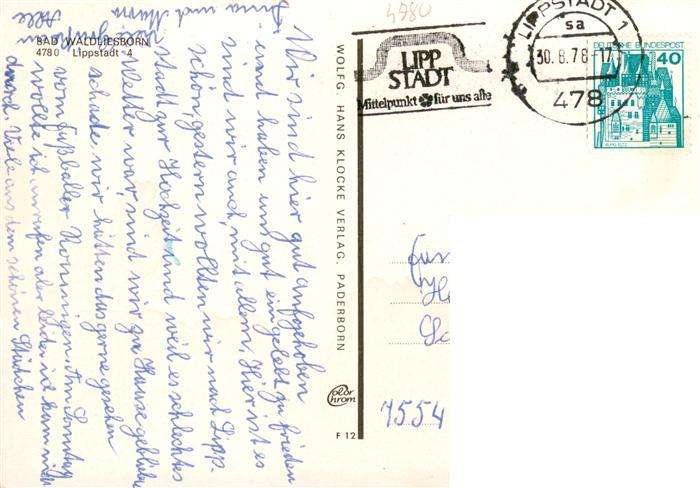 BAD WALDLIESBORN
4780 Lippstadt 4
Wir sind hier gut aufgehoben
und haben uns gut eingelebt zu frieden
sind wir auch, mit allem. Hier ist es
schön, gestern wollten wir nach Lipp-
stadt zur Hochzeit und weil es schlechtes
Wetter war, sind wir zu Hause geblieben
schade, wir hätten das gerne gesehen
vom Fußballer Rominigen. Am Sonntag
wollte ich anrufen aber leider ich kam nicht
durch. Viele aus dem schönen Städtchen
Alle
und Mama
WOLFG. HANS KLOCKE VERLAG. PADERBORN
color chrom
F 12
4780
LIPP
STADT
Mittelpunkt für uns alle
LIPPSTADT 1
sa
30.8.78-17
478
DEUTSCHE BUNDESPOST
40
BURG ELTZ
7554